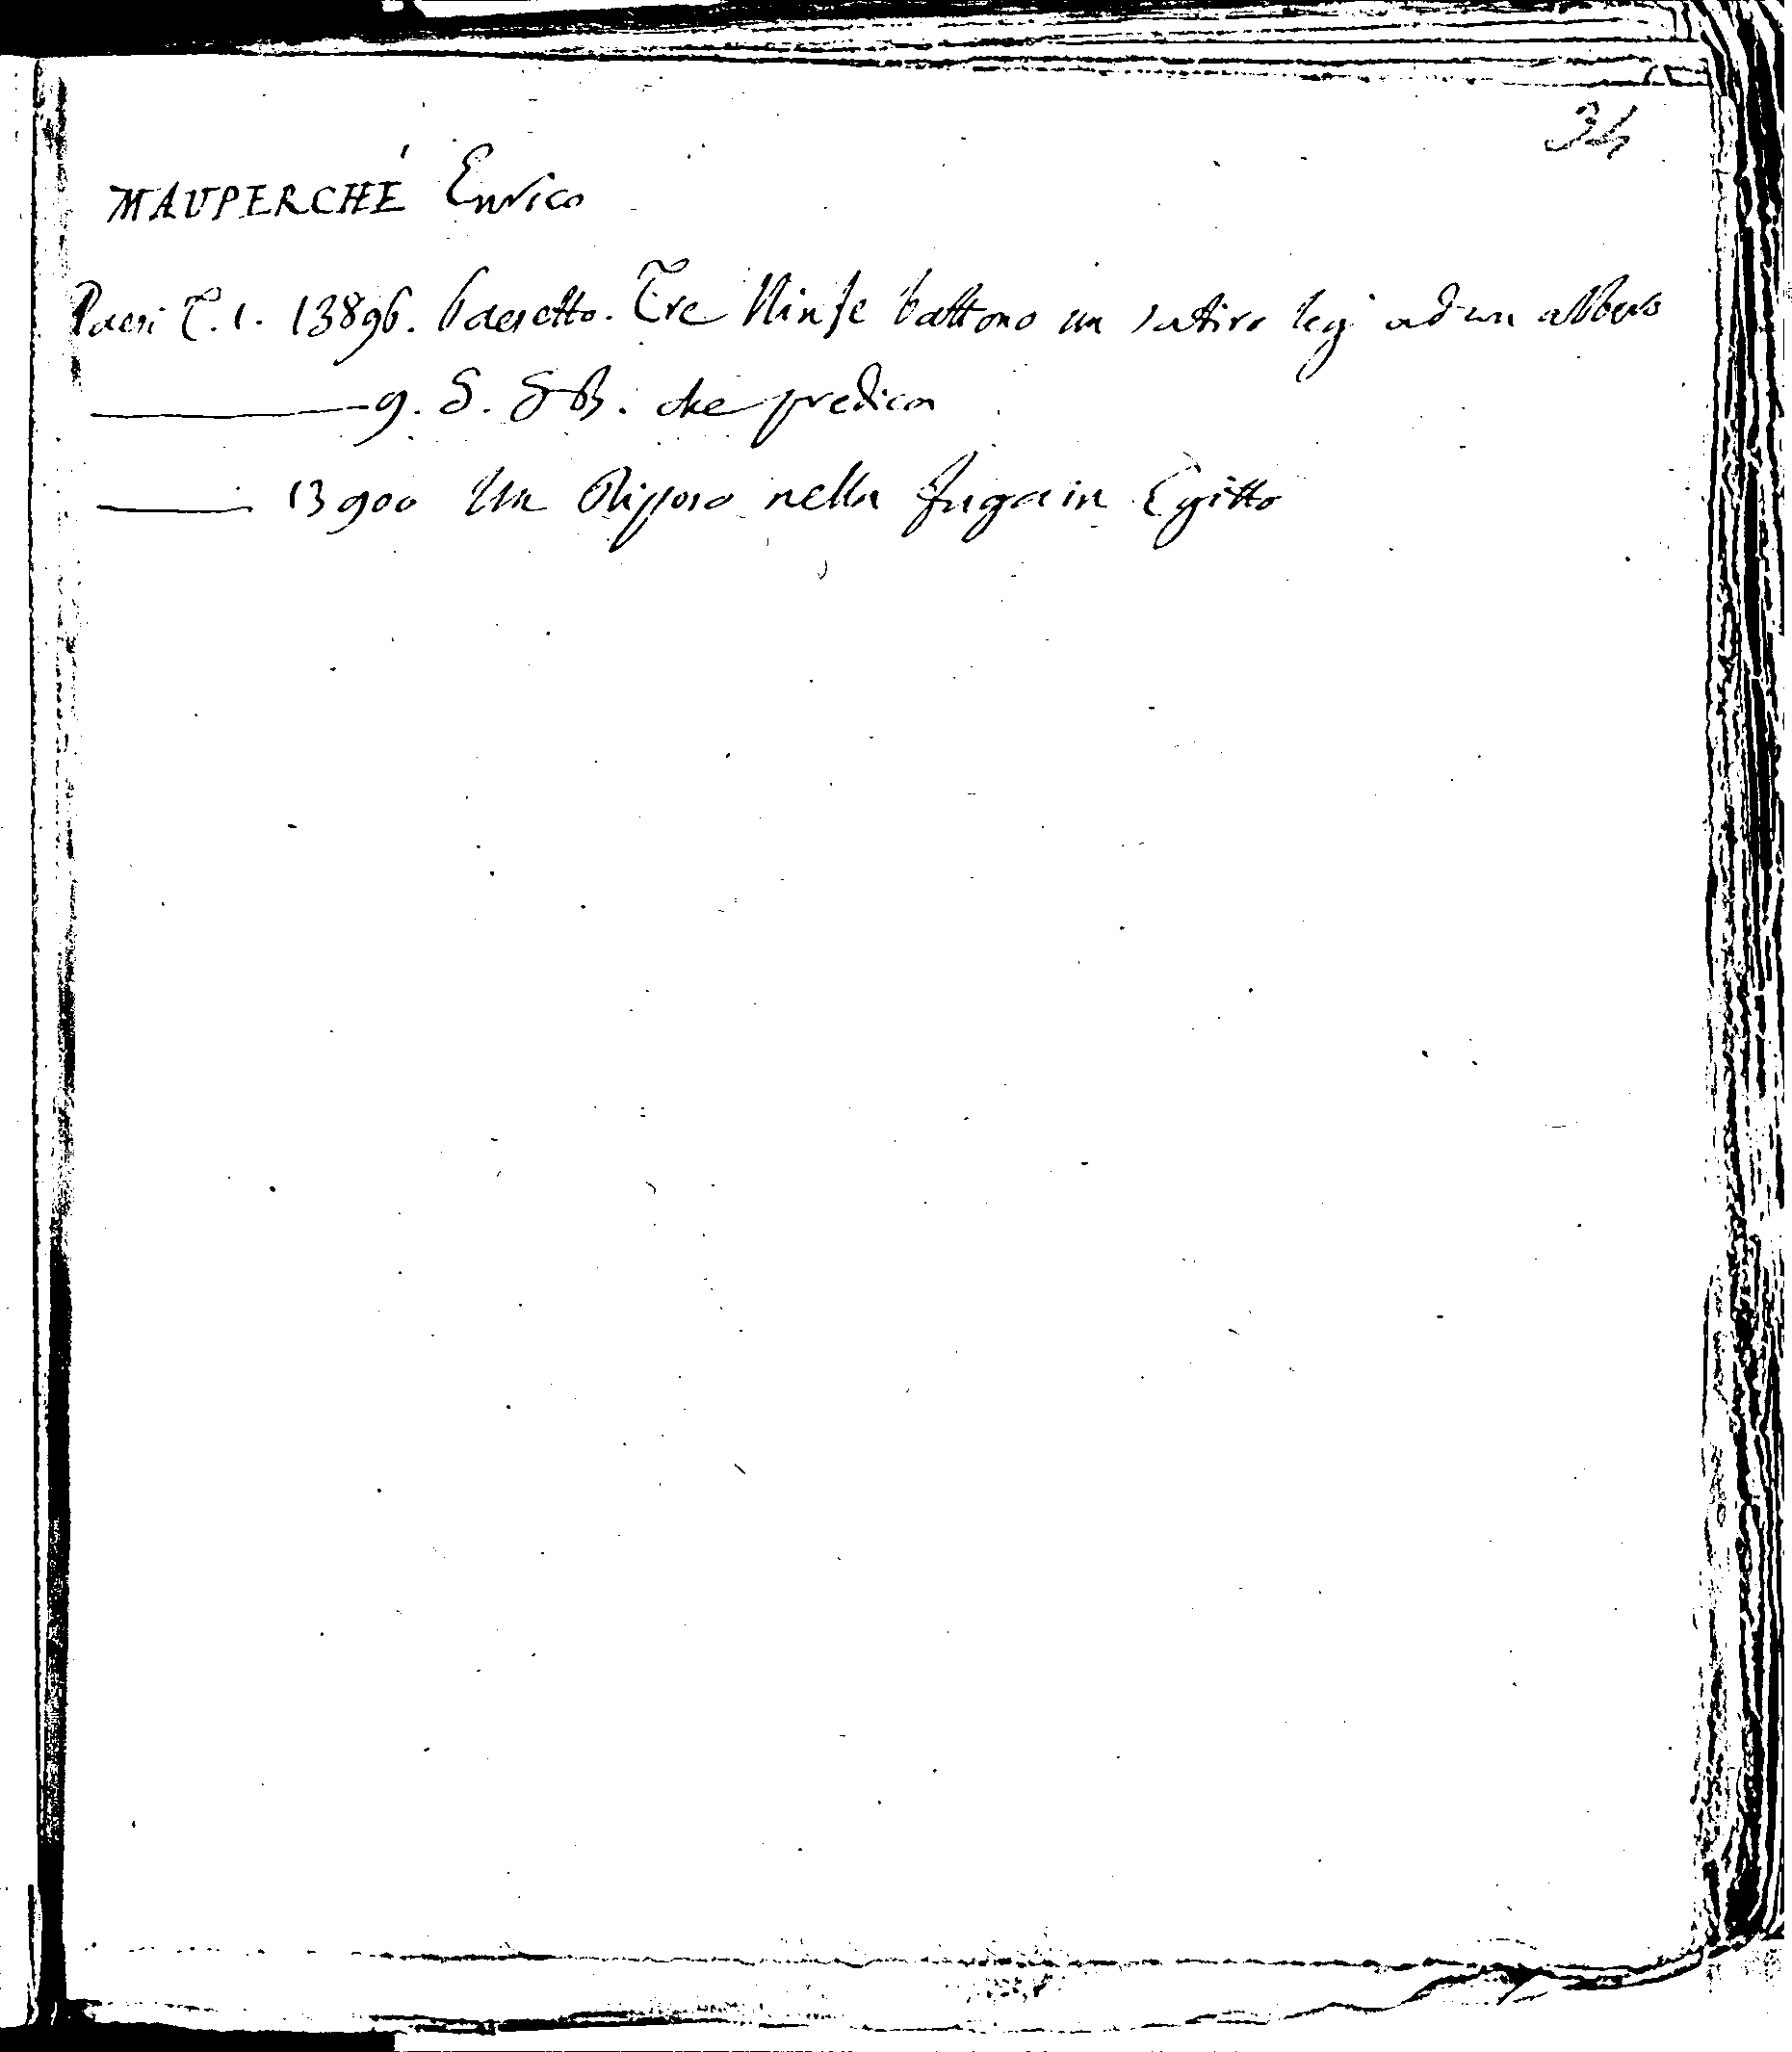 34
MAUPERCHÉ Enrico
Paesi T. 1. 13896. Paesetto. Tre Ninfe battono un satiro leg. ad un albero
9. S. GB. che predica
13900 Un Riposo nella fuga in Egitto